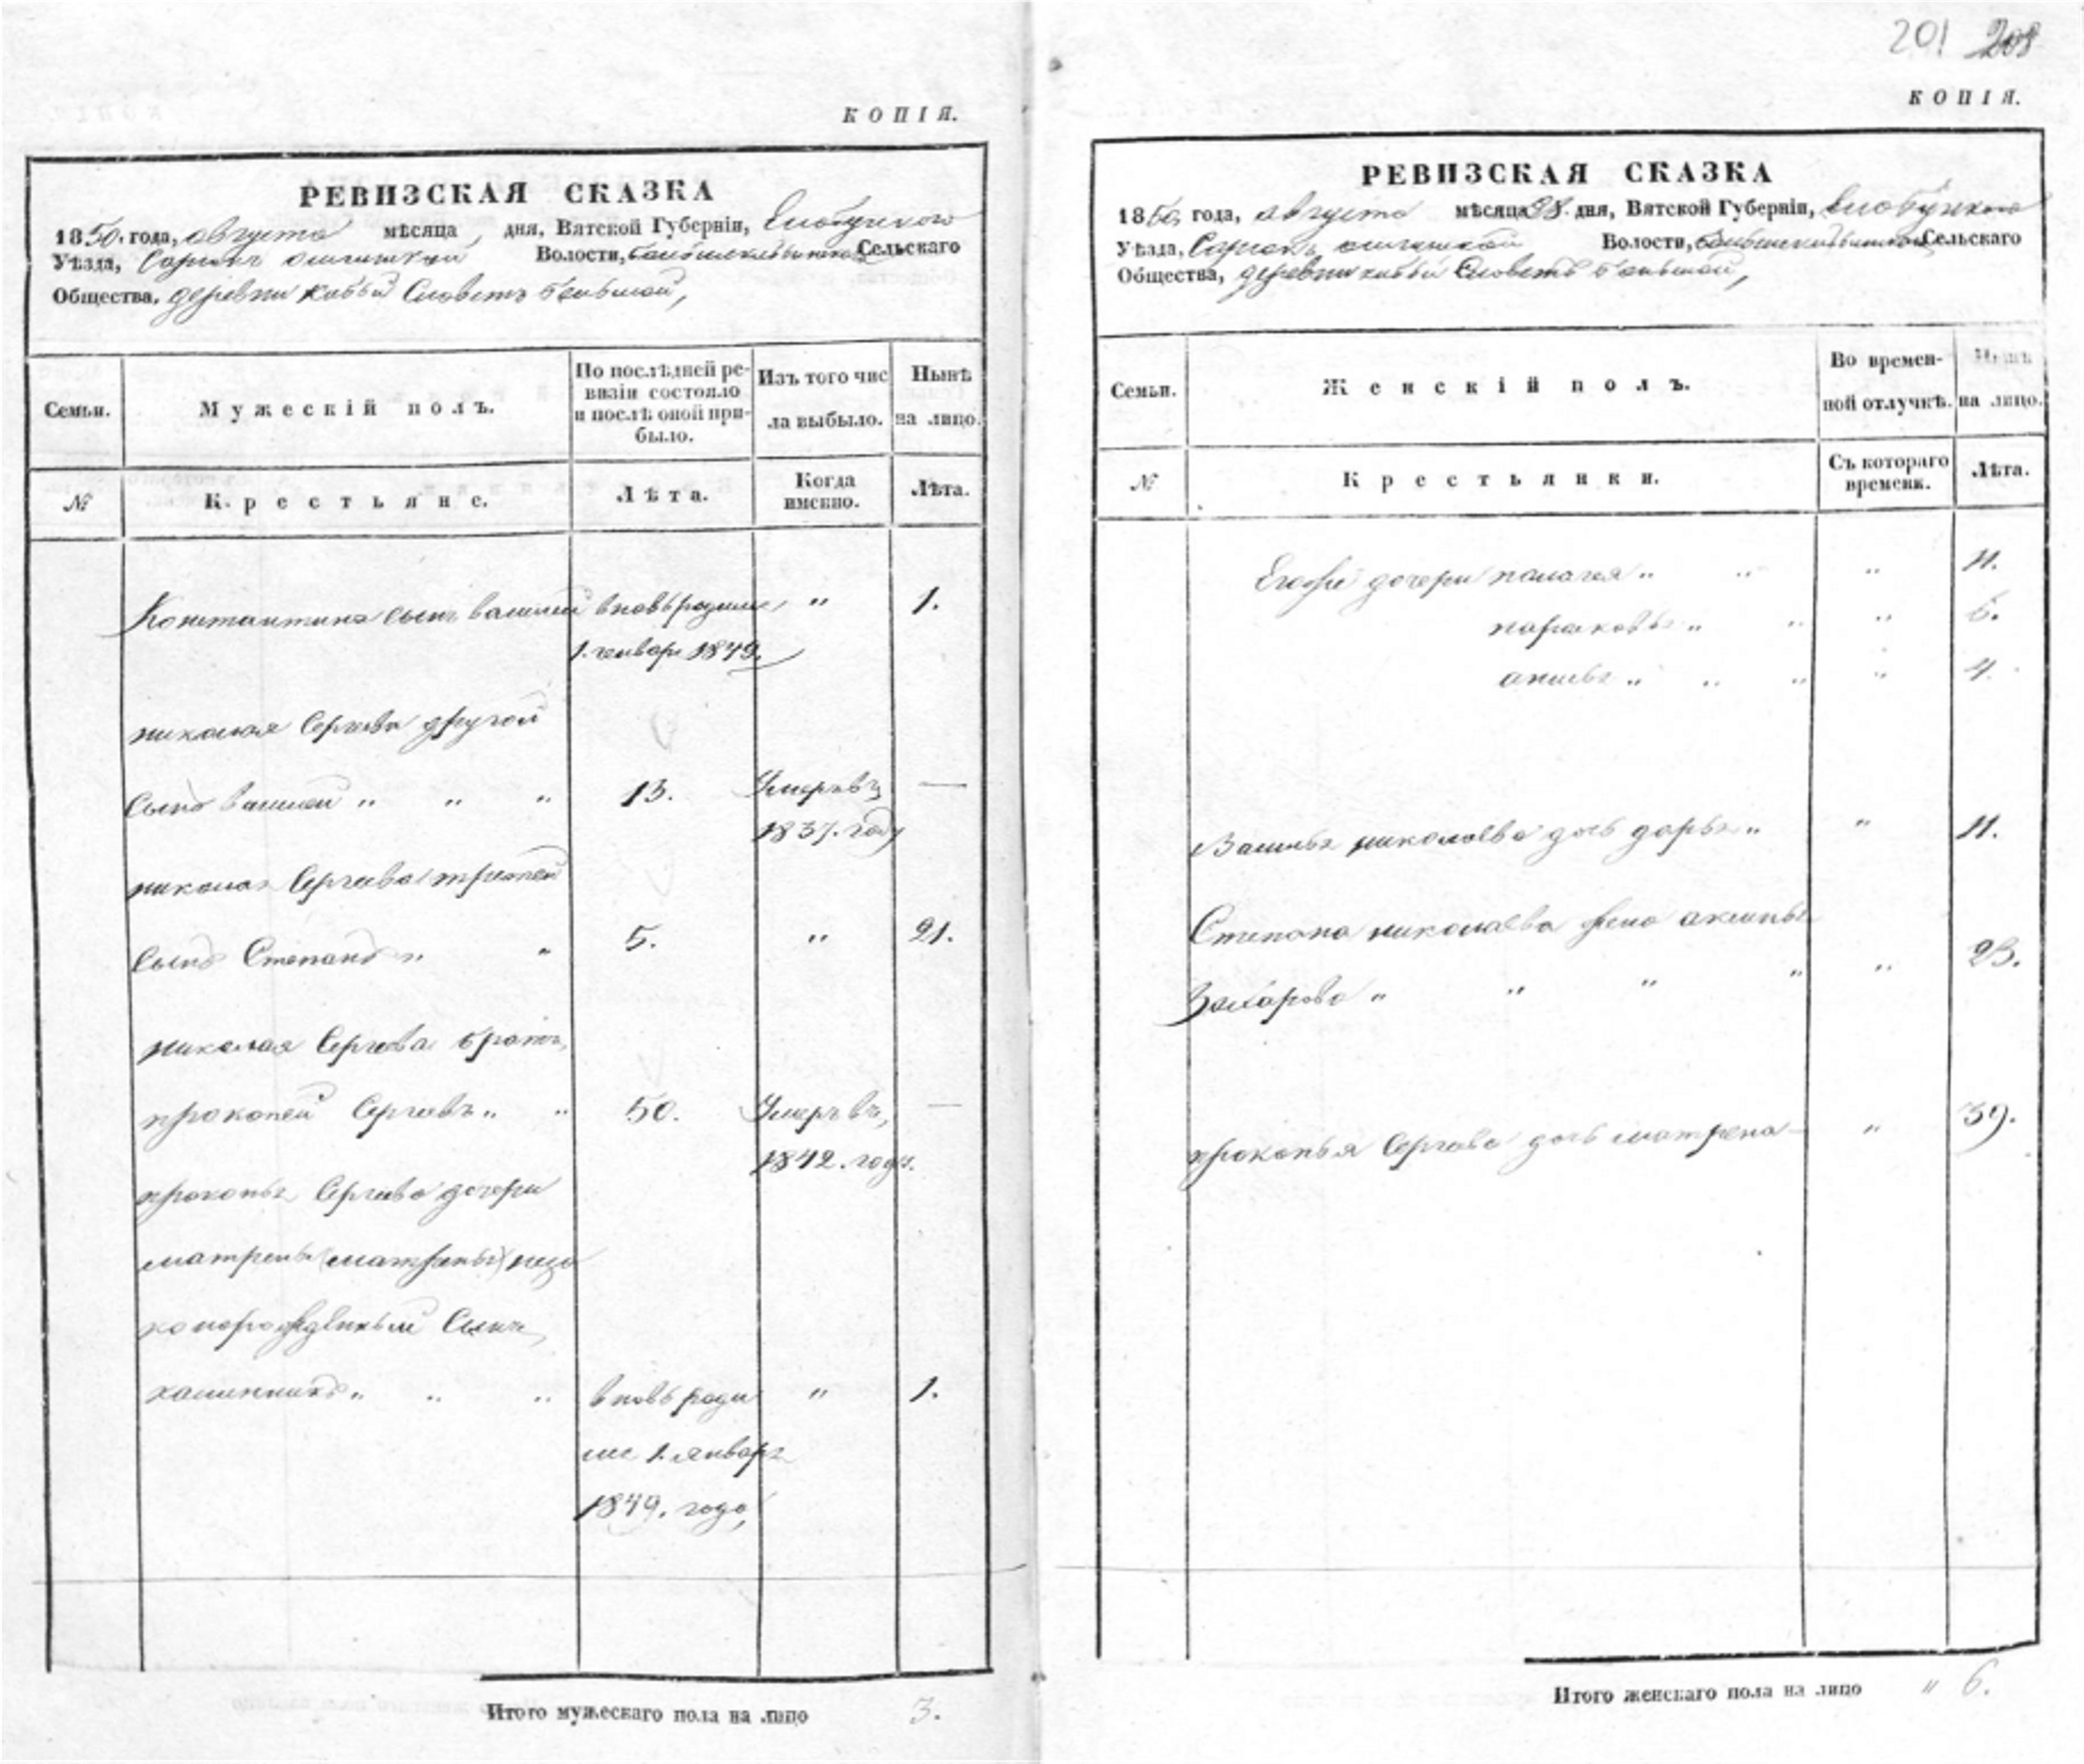 КОПІЯ.
РЕВИЗСКАЯ СКАЗКА
1850. года, августа мѣсяца, дня, Вятской Губерніи,
Уѣзда, Волости, Сельскаго
Общества, деревни
Семьи.
Мужескій полъ.
По послѣдней ре-
визіи состояло
и послѣ оной при-
было.
Изъ того чис
ла выбыло.
Нынѣ
на лицо.
№
Крестьяне.
Лѣта.
Когда
именно.
Лѣта.
Константина сынъ василей вновь родился " 1.
1. генваря 1849.
николая Сергеева другой
сынъ василей " " " 13. Умеръ въ —
1837. году
николая Сергеева третей
сынъ Степанъ " " 5. " 21.
николая Сергеева братъ,
прокопей Сергеевъ " " 50. Умеръ въ, —
1842. году.
прокопья Сергеева дочери
матрены (матрены) неза
конорожденный Сынъ,
" " " вновь роди " 1.
лся 1. января
1849. года,
Итого мужескаго пола на лицо 3.
201 208
КОПІЯ.
РЕВИЗСКАЯ СКАЗКА
1850 года, августа мѣсяца 28. дня, Вятской Губерніи,
Уѣзда, Волости, Сельскаго
Общества, деревни
Семьи.
Женскій полъ.
Во времен-
ной отлучкѣ.
Нынѣ
на лицо.
№
Крестьянки.
Съ котораго
времени.
Лѣта.
дочери палагея " " " 11.
парасковья " " " 6.
" " " " 4.
николаева дочь дарья " " 11.
Степана николаева жена аксинья
Захарова " " " " " 23.
прокопья Сергеева дочь матрена — " 39.
Итого женскаго пола на лицо " 6.